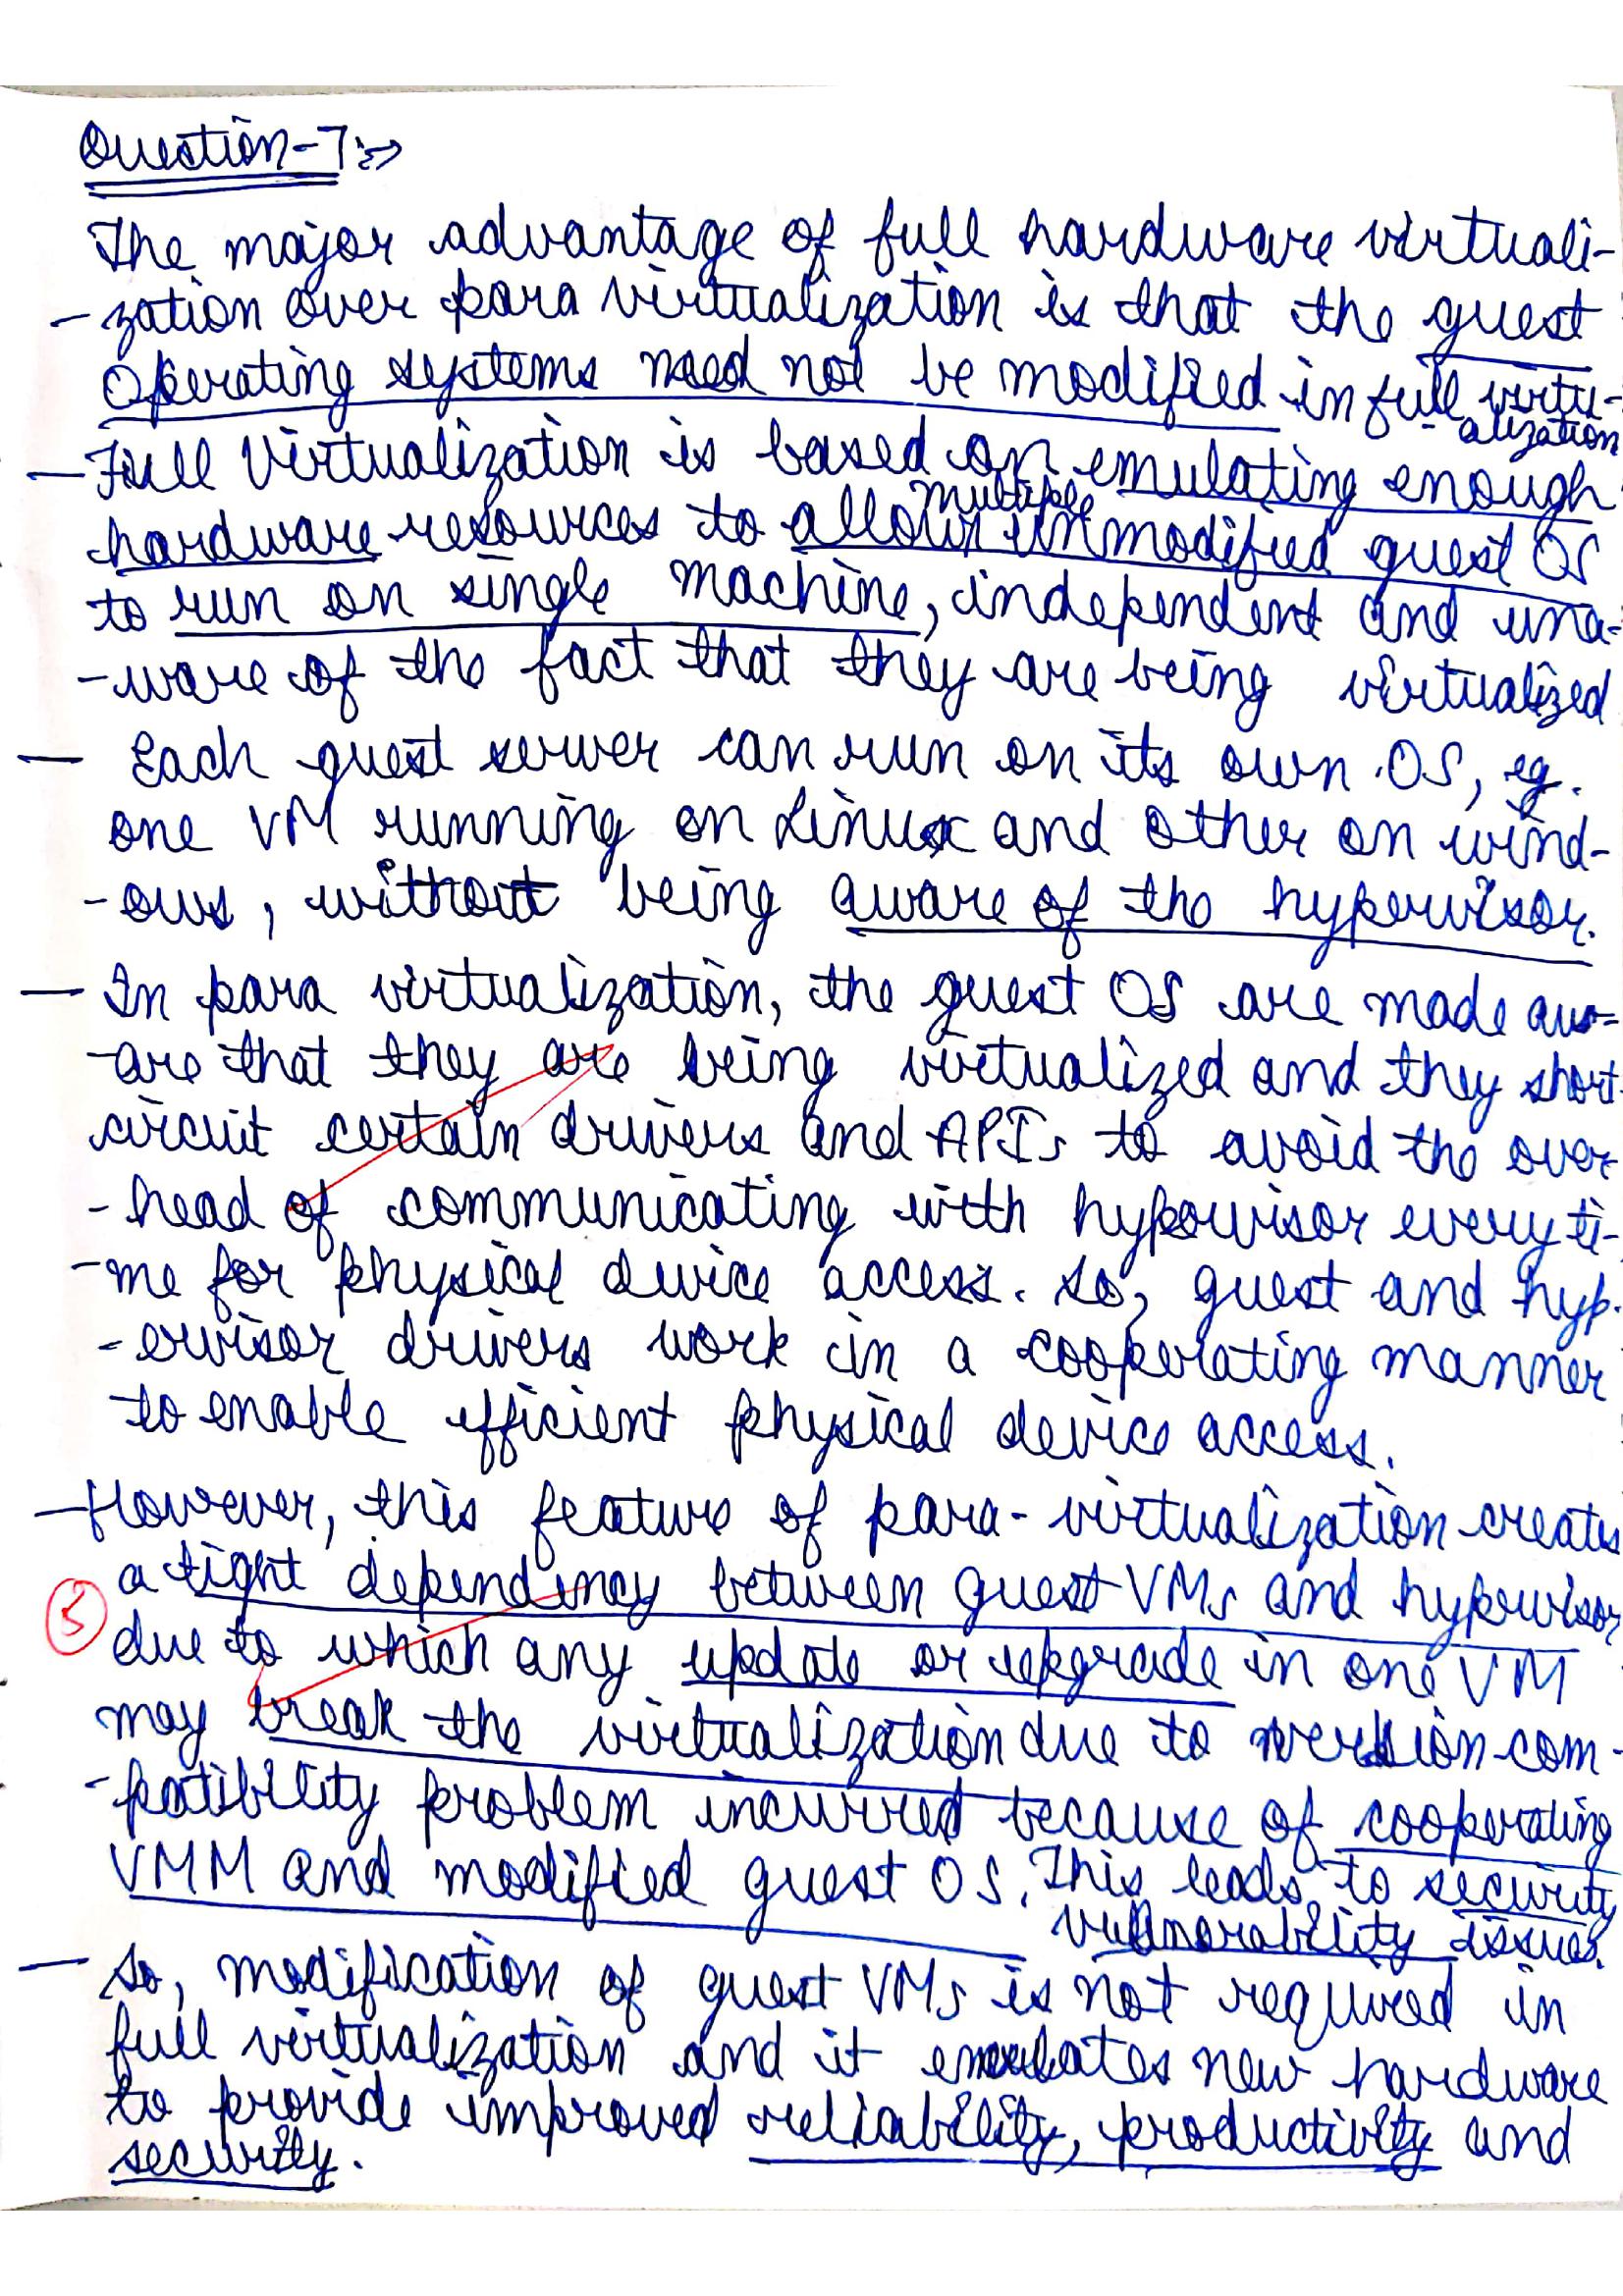 Question-7:→
The major advantage of full hardware virtuali-
-zation over para virtualization is that the guest
Operating systems need not be modified in full virtu-
alization
— Full Virtualization is based on emulating enough
hardware resources to allow multiple unmodified guest OS
to run on single machine, independent and una-
-ware of the fact that they are being virtualized
— Each guest server can run on its own OS, eg.
one VM running on Linux and other on wind-
-ows, without being aware of the hypervisor.
— In para virtualization, the guest OS are made aw-
-are that they are being virtualized and they short
circuit certain drivers and APIs to avoid the over-
-head of communicating with hypervisor every ti-
-me for physical device access. So, guest and hyp-
-ervisor drivers work in a cooperating manner
to enable efficient physical device access.
— However, this feature of para-virtualization creates
a tight dependency between guest VMs and hypervisor,
5 due to which any update or upgrade in one VM
may break the virtualization due to version com-
-patibility problem incurred because of cooperating
VMM and modified guest OS. This leads to security
vulnerability issues.
— So, modification of guest VMs is not required in
full virtualization and it emulates new hardware
to provide improved reliability, productivity and
security.